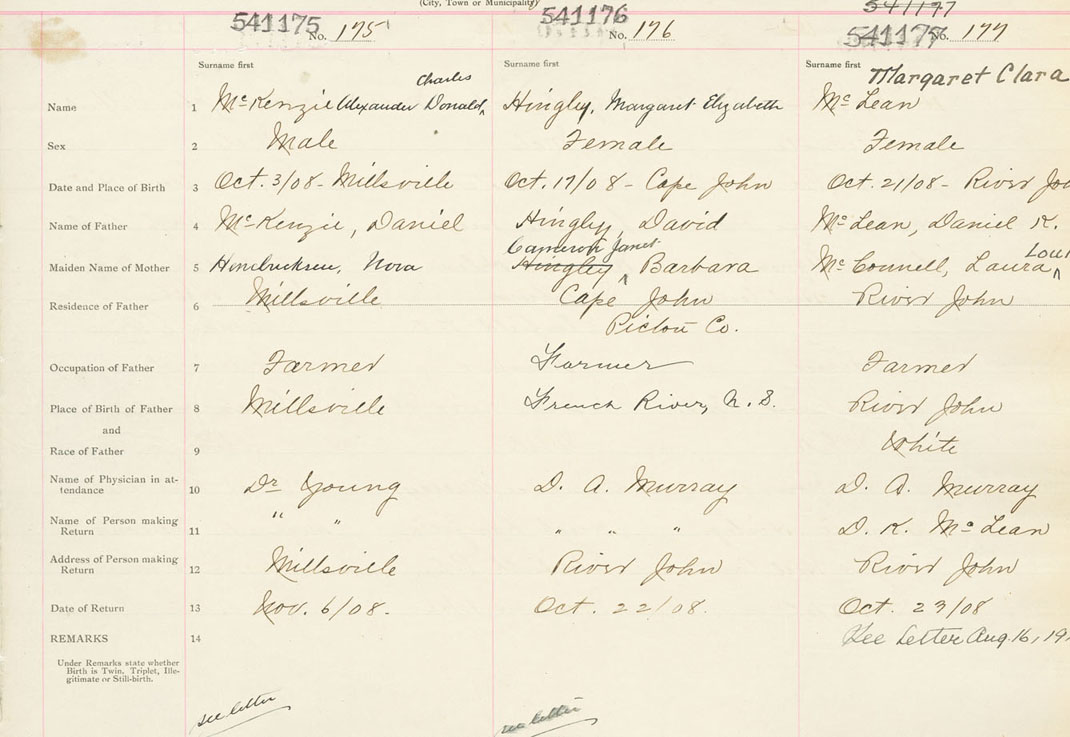 (City, Town or Municipality)
541175 No. 175
541176 No. 176
541177
No. 177
Surname first
Surname first
Surname first
Charles
Margaret Clara
Name 1 McKenzie Alexander Donald, Hingley, Margaret Elizabeth McLean
Sex 2 Male Female Female
Date and Place of Birth 3 Oct. 3/08 - Millsville Oct. 17/08 - Cape John Oct. 21/08 - River
Name of Father 4 McKenzie, Daniel Hingley, David McLean, Daniel K.
Cameron Janet
Maiden Name of Mother 5 Nora Hingley Barbara McConnell, Laura
Residence of Father 6 Millsville Cape John River John
Pictou Co.
Occupation of Father 7 Farmer Farmer Farmer
Place of Birth of Father 8 Millsville French River, N.S. River John
and
Race of Father 9 White
Name of Physician in at-
tendance 10 Dr Young D. A. Murray D. A. Murray
Name of Person making
Return 11 " " " " " D. K. McLean
Address of Person making
Return 12 Millsville River John River John
Date of Return 13 Nov. 6/08. Oct. 22/08. Oct. 23/08
REMARKS 14 See Letter Aug. 16, 19
Under Remarks state whether
Birth is Twin. Triplet, Ille-
gitimate or Still-birth.
see letter
see letter